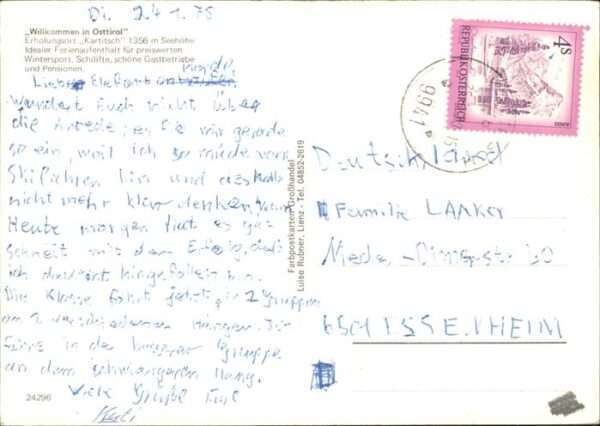 Di. 24.1.78
„Willkommen in Osttirol"
Erholungsort „Kartitsch" 1356 m Seehöhe
Idealer Ferienaufenthalt für preiswerten
Wintersport, Schilifte, schöne Gastbetriebe
und Pensionen.
Wundert Euch nicht über
die Anrede, es fiel mir gerade
so ein, weil ich so müde vom
Skifahren bin und deshalb
nicht mehr klar denken kann
Heute morgen hat es ge-
schneit mit dem Erfolg, daß
ich dauernd hingefallen bin.
Die Klasse fährt jetzt in 2 Gruppen
an 2 verschiedenen Hängen. Ich
in der Gruppe
an dem schwierigeren Hang.
Viele Grüße
24296
Farbpostkarten Großhandel
Luise Rubner, Lienz - Tel. 04852-2619
4S
REPUBLIK ÖSTERREICH
9941
Deutschland
Familie LANKER
6501 ESSENHEIM